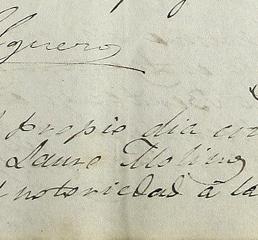 propio dia
Lauro Molina
notoriedad á la